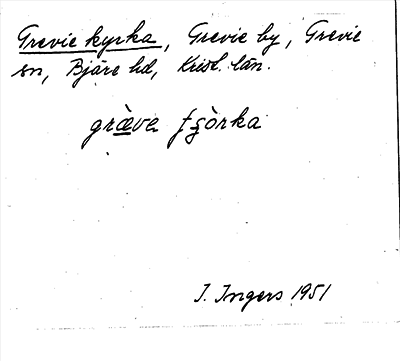 Grevie kyrka, Grevie by, Grevie
sn, Bjäre hd, Krist. län.
græ̀va
I. Ingers 1951